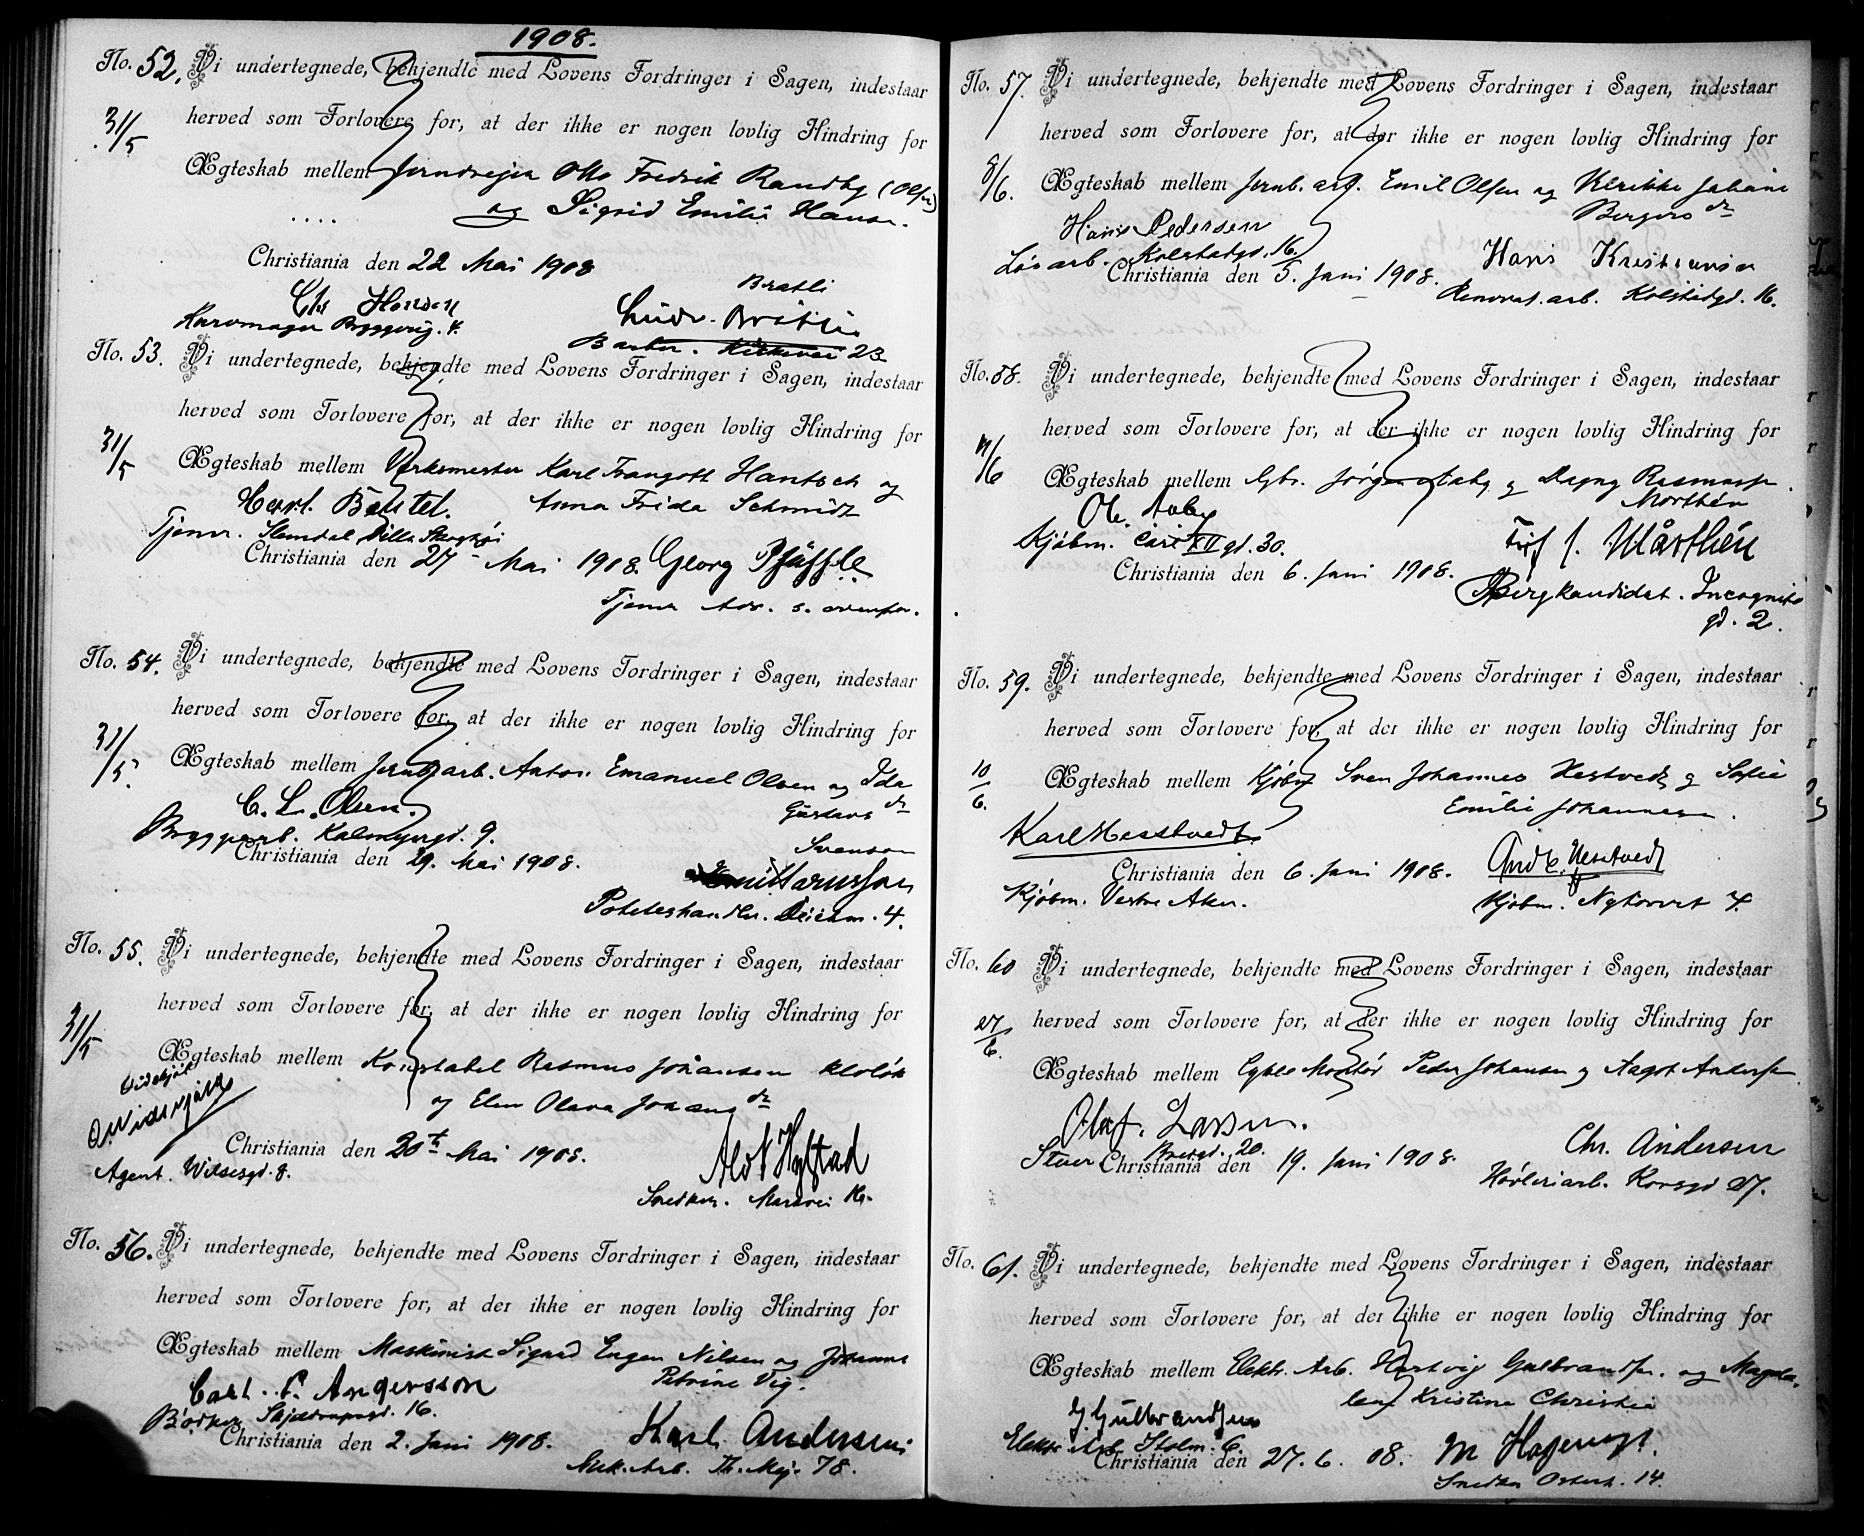 1908.
No. 52. Vi undertegnede, bekjendte med Lovens Fordringer i Sagen, indestaar
31/5 herved som Forlovere for, at der ikke er nogen lovlig Hindring for
Ægteskab mellem Jerndreier Otto Fredrik Randby (Olsen)
og Sigrid Emilie Hansen.
Christiania den 22 Mai 1908
Chr Hansen
Bratli
Barber. Kirkevei 23
No. 53. Vi undertegnede, bekjendte med Lovens Fordringer i Sagen, indestaar
herved som Forlovere for, at der ikke er nogen lovlig Hindring for
31/5 Ægteskab mellem Verksmester Karl Traugott Hantsch og
Anna Frida Schmidt
Tjener. Slemdal Villa
Christiania den 27 Mai 1908. Georg Pfäffle
Tjener
No. 54. Vi undertegnede, bekjendte med Lovens Fordringer i Sagen, indestaar
herved som Forlovere for, at der ikke er nogen lovlig Hindring for
31/5 Ægteskab mellem Jernbarb. Anton Emanuel Olsen og Ida
C. L. Olsen. Gustavs dr
Byggearb. Kalmeyergd. 9. Svenson
Christiania den 29. Mai 1908.
Poteteshandler. Deichm. 4.
No. 55. Vi undertegnede, bekjendte med Lovens Fordringer i Sagen, indestaar
herved som Forlovere for, at der ikke er nogen lovlig Hindring for
31/5 Ægteskab mellem Konstabel Rasmus Johansen
og Elen Olava Johans dr
Christiania den 30te Mai 1908.
Agent. Wilsesgd. 8.
Snedker.
No. 56. Vi undertegnede, bekjendte med Lovens Fordringer i Sagen, indestaar
herved som Forlovere for, at der ikke er nogen lovlig Hindring for
Ægteskab mellem Maskinist Sigurd Eugen Nilsen og Johanne
Petrine Vig.
Carl. P. Andersson
Bødker 16.
Christiania den 2. Juni 1908. Karl Andersen
Mek. Arb. Th. Mej. 78.
No. 57. Vi undertegnede, bekjendte med Lovens Fordringer i Sagen, indestaar
herved som Forlovere for, at der ikke er nogen lovlig Hindring for
8/6. Ægteskab mellem Jernb. arb. Emil Olsen og Ulrikke Jahane
Bergers dr
Hans Pedersen
Løsarb. Kolstadgd. 16.
Christiania den 5. Juni 1908. Hans Kristiansen
Renovat. arb. Kolstadgd. 16.
No. 58. Vi undertegnede, bekjendte med Lovens Fordringer i Sagen, indestaar
herved som Forlovere for, at der ikke er nogen lovlig Hindring for
Ægteskab mellem Gbr. Jørgen Aaby og Dagny Rasmussen
Morthén
Ole Aaby
Kjøbm. Carl XII gd. 30.
Christiania den 6. Juni 1908.
Bergkandidat. Incognito
gd. 2.
No. 59. Vi undertegnede, bekjendte med Lovens Fordringer i Sagen, indestaar
herved som Forlovere for, at der ikke er nogen lovlig Hindring for
10/6. Ægteskab mellem Kjøbm Sven Johannes Hestvedt og Sofie
Emilie Johannesen.
Karl Hesstvedt
Christiania den 6. Juni 1908. And E. Hestvedt
Kjøbm. Vestre Aker. Kjøbm. Nytorvet 7.
No. 60 Vi undertegnede, bekjendte med Lovens Fordringer i Sagen, indestaar
herved som Forlovere for, at der ikke er nogen lovlig Hindring for
27/6. Ægteskab mellem Cykle Montør Peder Johansen og Aagot Andersen
Olaf. Larsen.
20.
Christiania den 19. Juni 1908. Chr. Andersen
Høvleriarb. Korsgd 27.
No. 61. Vi undertegnede, bekjendte med Lovens Fordringer i Sagen, indestaar
herved som Forlovere for, at der ikke er nogen lovlig Hindring for
Ægteskab mellem Elektr. Arb. Hartvig Gulbrandsen. og Magda-
lena Kristine Christie
Gulbrandsen
Elektr. Arb. Holm. 6.
Christiania den 27. 6. 08.
Snedker 14.